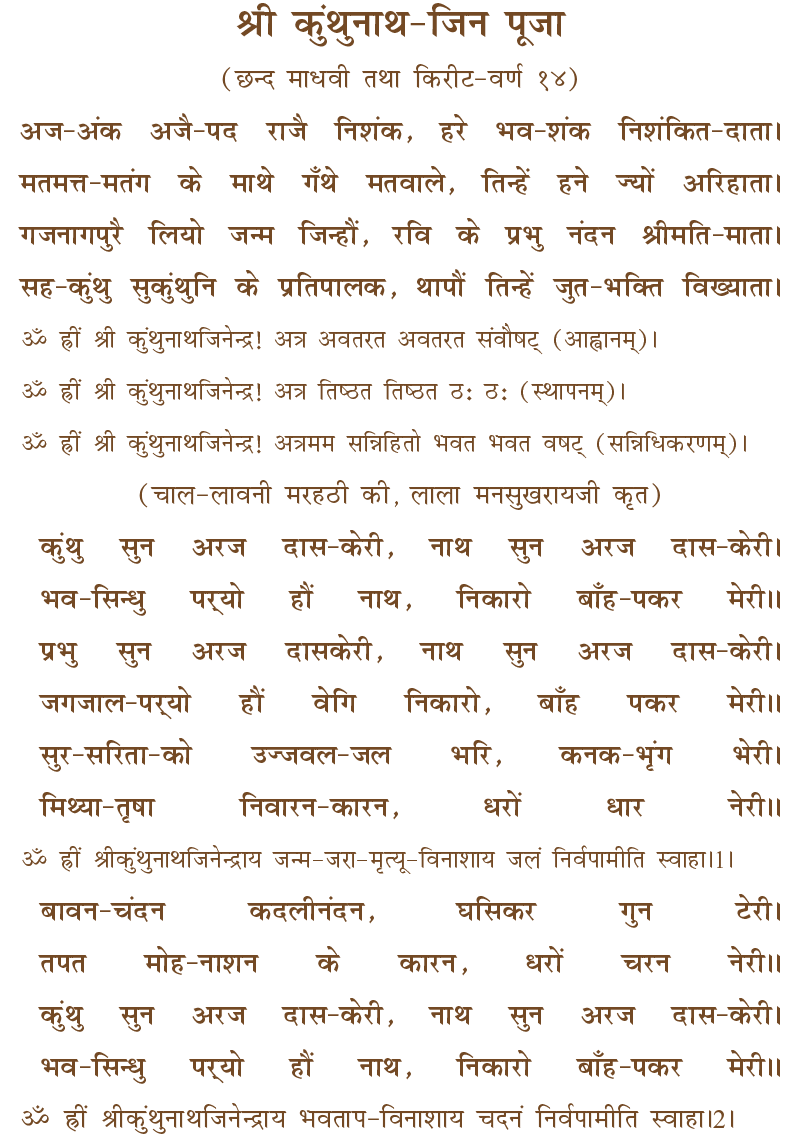 श्री कुंथुनाथ-जिन पूजा
(छन्द माधवी तथा किरीट-वर्ण १४)
अज-अंक अजै-पद राजै निशंक, हरे भव-शंक निशंकित-दाता।
मतमत्त-मतंग के माथे गँथे मतवाले, तिन्हें हने ज्यों अरिहाता।
गजनागपुरै लियो जन्म जिन्हौं, रवि के प्रभु नंदन श्रीमति-माता।
सह-कुंथु सुकुंथुनि के प्रतिपालक, थापौं तिन्हें जुत-भक्ति विख्याता।
ॐ ह्रीं श्री कुंथुनाथजिनेन्द्र! अत्र अवतरत अवतरत संवौषट् (आह्वानम्)।
ॐ ह्रीं श्री कुंथुनाथजिनेन्द्र! अत्र तिष्ठत तिष्ठत ठः ठः (स्थापनम्)।
ॐ ह्रीं श्री कुंथुनाथजिनेन्द्र! अत्रमम सन्निहितो भवत भवत वषट् (सन्निधिकरणम्)।
(चाल-लावनी मरहठी की, लाला मनसुखरायजी कृत)
कुंथु सुन अरज दास-केरी, नाथ सुन अरज दास-केरी।
भव-सिन्धु पर्‌यो हौं नाथ, निकारो बाँह-पकर मेरी॥
प्रभु सुन अरज दासकेरी, नाथ सुन अरज दास-केरी।
जगजाल-पर्‌यो हौं वेगि निकारो, बाँह पकर मेरी॥
सुर-सरिता-को उज्जवल-जल भरि, कनक-भृंग भेरी।
मिथ्या-तृषा निवारन-कारन, धरों धार नेरी॥
ॐ ह्रीं श्रीकुंथुनाथजिनेन्द्राय जन्म-जरा-मृत्यू-विनाशाय जलं निर्वपामीति स्वाहा।1।
बावन-चंदन कदलीनंदन, घसिकर गुन टेरी।
तपत मोह-नाशन के कारन, धरों चरन नेरी॥
कुंथु सुन अरज दास-केरी, नाथ सुन अरज दास-केरी।
भव-सिन्धु पर्‌यो हौं नाथ, निकारो बाँह-पकर मेरी॥
ॐ ह्रीं श्रीकुंथुनाथजिनेन्द्राय भवताप-विनाशाय चदनं निर्वपामीति स्वाहा।2।